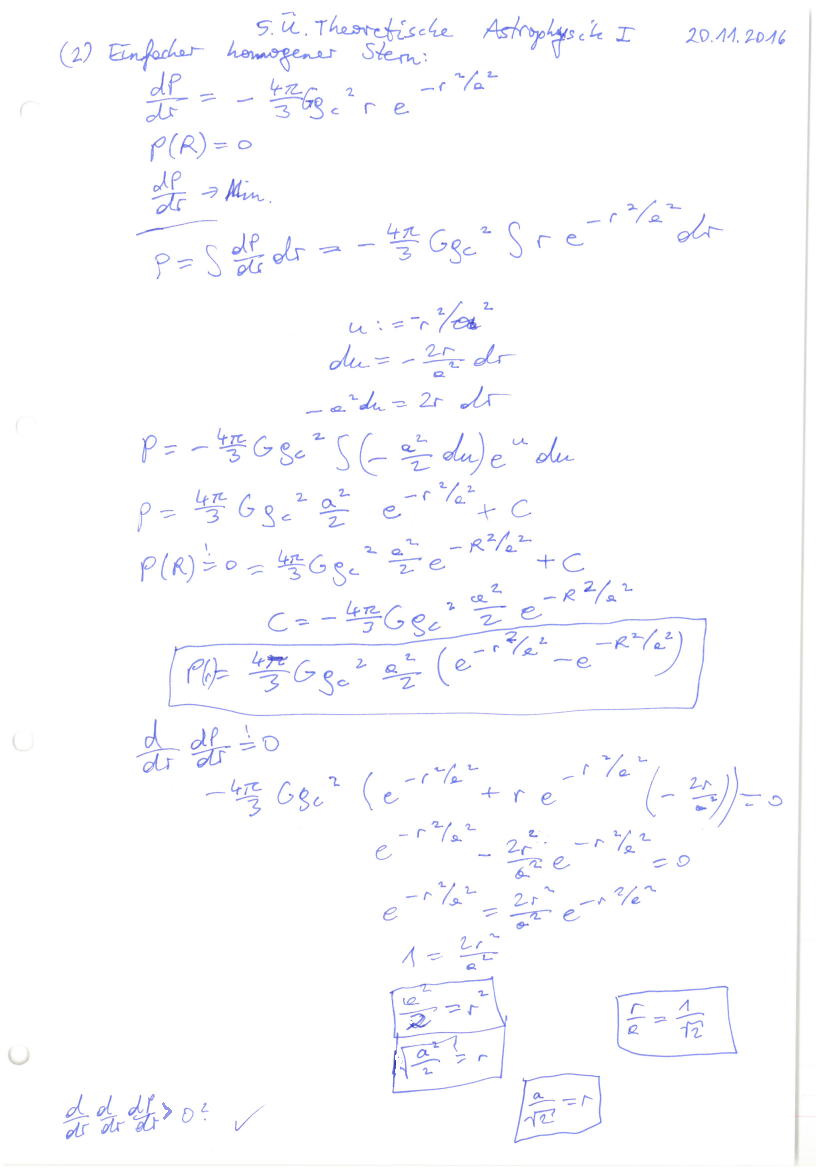 5. Ü. Theoretische Astrophysik I 20.11.2016
(2) Einfacher homogener Stern:
dP/dr = - 4π/3 Gρc² r e^(-r²/a²)
P(R) = 0
dP/dr → Min.
P = ∫ dP/dr dr = - 4π/3 Gρc² ∫ r e^(-r²/a²) dr
u := -r²/a²
du = - 2r/a² dr
-a²du = 2r dr
P = - 4π/3 Gρc² ∫(- a²/2 du) e^u du
P = 4π/3 Gρc² a²/2 e^(-r²/a²) + C
P(R) != 0 = 4π/3 Gρc² a²/2 e^(-R²/a²) + C
C = - 4π/3 Gρc² a²/2 e^(-R²/a²)
P(r) = 4π/3 Gρc² a²/2 (e^(-r²/a²) - e^(-R²/a²))
d/dr dP/dr != 0
- 4π/3 Gρc² (e^(-r²/a²) + r e^(-r²/a²) (- 2r/a²)) = 0
e^(-r²/a²) - 2r²/a² e^(-r²/a²) = 0
e^(-r²/a²) = 2r²/a² e^(-r²/a²)
1 = 2r²/a²
a²/2 = r²
r/a = 1/√2
√(a²/2) = r
a/√2 = r
d/dr d/dr dP/dr > 0? ✓